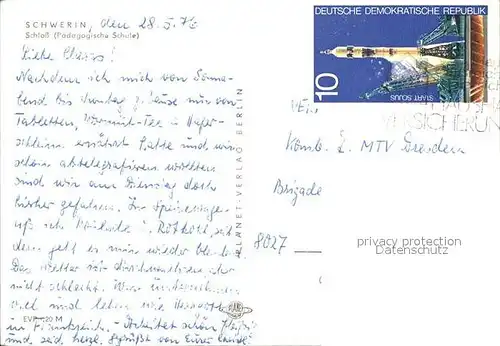 SCHWERIN, den 28.5.76
Schloß (Pädagogische Schule)
Liebe Claus!
Nachdem ich mich von Sonna-
bend bis Montag zu Hause nur von
Tabletten, Wermut-Tee u. Hafer-
schleim ernährt hatte und wir
schon abtelegrafieren wollten
sind wir am Dienstag doch
hierher gefahren. Im Speisewa-
Rotkohl, seit
dem geht es mir wieder
Das Wetter ist
nicht schlecht. Wir unternehmen
viel und leben wie Herrgott
in Frankreich. - Arbeitet schön
und seid herzl. gegrüßt von Eurer
EVP -,20 M
PLANET-VERLAG BERLIN
DEUTSCHE DEMOKRATISCHE REPUBLIK
10
START SOJUS
VERSICHERUN
Komb. L. MTV Dresden
Brigade
8027
privacy protection
Datenschutz